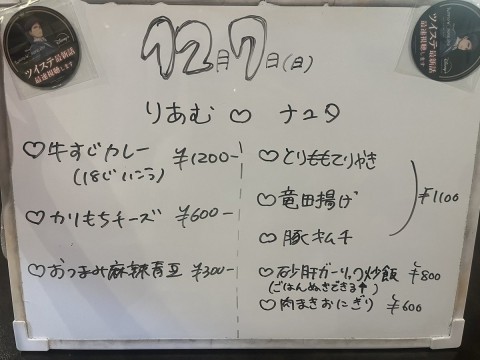 ツイステ最新話
最速視聴します
12月7日(日)
りあむ♡ナユタ
♡牛すじカレー ¥1200-
(18じいこう)
♡カリもちチーズ ¥600-
♡おつまみ麻辣青豆 ¥300-
♡とりももてりやき
♡竜田揚げ
♡豚キムチ
¥1100
♡砂肝ガーリック炒飯 ¥800
(ごはんぬきできる↑)
♡肉まきおにぎり ¥600
ツイステ最新話
最速視聴します